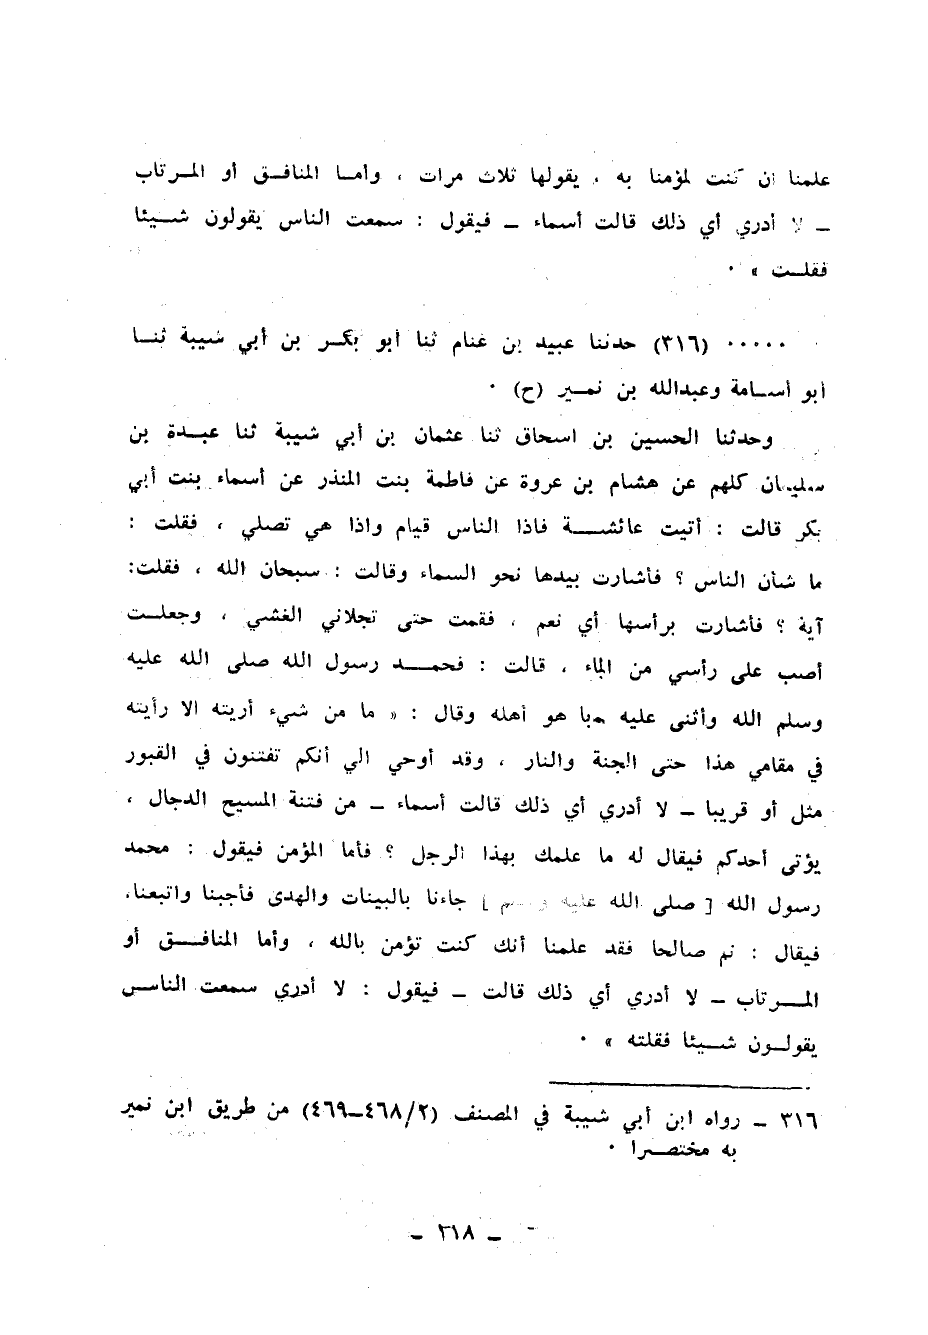 علمنا ان كنت لمؤمنا به ، يقولها ثلاث مرات ، وأمـا المنافـق أو المـرتاب
ـ لا أدري أي ذلك قالت أسماء ـ فيقول : سمعت الناس يقولون شـيئا
فقلـت » ٠
٠٠٠٠٠ (٣١٦) حدثنا عبيد بن غنام ثنا أبو بكـر بن أبي شيبة ثنـا
أبو أسـامة وعبدالله بن نمـير (ح) ٠
وحدثنا الحسين بن اسحاق ثنا عثمان بن أبي شيبة ثنا عبـدة بن
سليمان كلهم عن هشام بن عروة عن فاطمة بنت المنذر عن أسماء بنت أبي
بكر قالت : أتيت عائشـة فاذا الناس قيام واذا هي تصلي ، فقلت :
ما شأن الناس ؟ فأشارت بيدها نحو السماء وقالت : سبحان الله ، فقلت:
آية ؟ فأشارت برأسها أي نعم ، فقمت حتى تجلاني الغشي ، وجعلـت
أصب على رأسي من الماء ، قالت : فحمـد رسول الله صلى الله عليه
وسلم الله وأثنى عليه بما هو أهله وقال : « ما من شيء أريته الا رأيته
في مقامي هذا حتى الجنة والنار ، وقد أوحي الي أنكم تفتنون في القبور
مثل أو قريبا ـ لا أدري أي ذلك قالت أسماء ـ من فتنة المسيح الدجال ،
يؤتى أحدكم فيقال له ما علمك بهذا الرجل ؟ فأما المؤمن فيقول : محمد
رسول الله [ صلى الله عليه وسلم ] جاءنا بالبينات والهدى فأجبنا واتبعنا،
فيقال : نم صالحا فقد علمنا أنك كنت تؤمن بالله ، وأما المنافـق أو
المـرتاب ـ لا أدري أي ذلك قالت ـ فيقول : لا أدري سمعت الناس
يقولـون شـيئا فقلته » ٠
٣١٦ ـ رواه ابن أبي شيبة في المصنف (٤٦٨/٢ـ٤٦٩) من طريق ابن نمير
به مختصـرا ٠
ـ ٣١٨ ـ